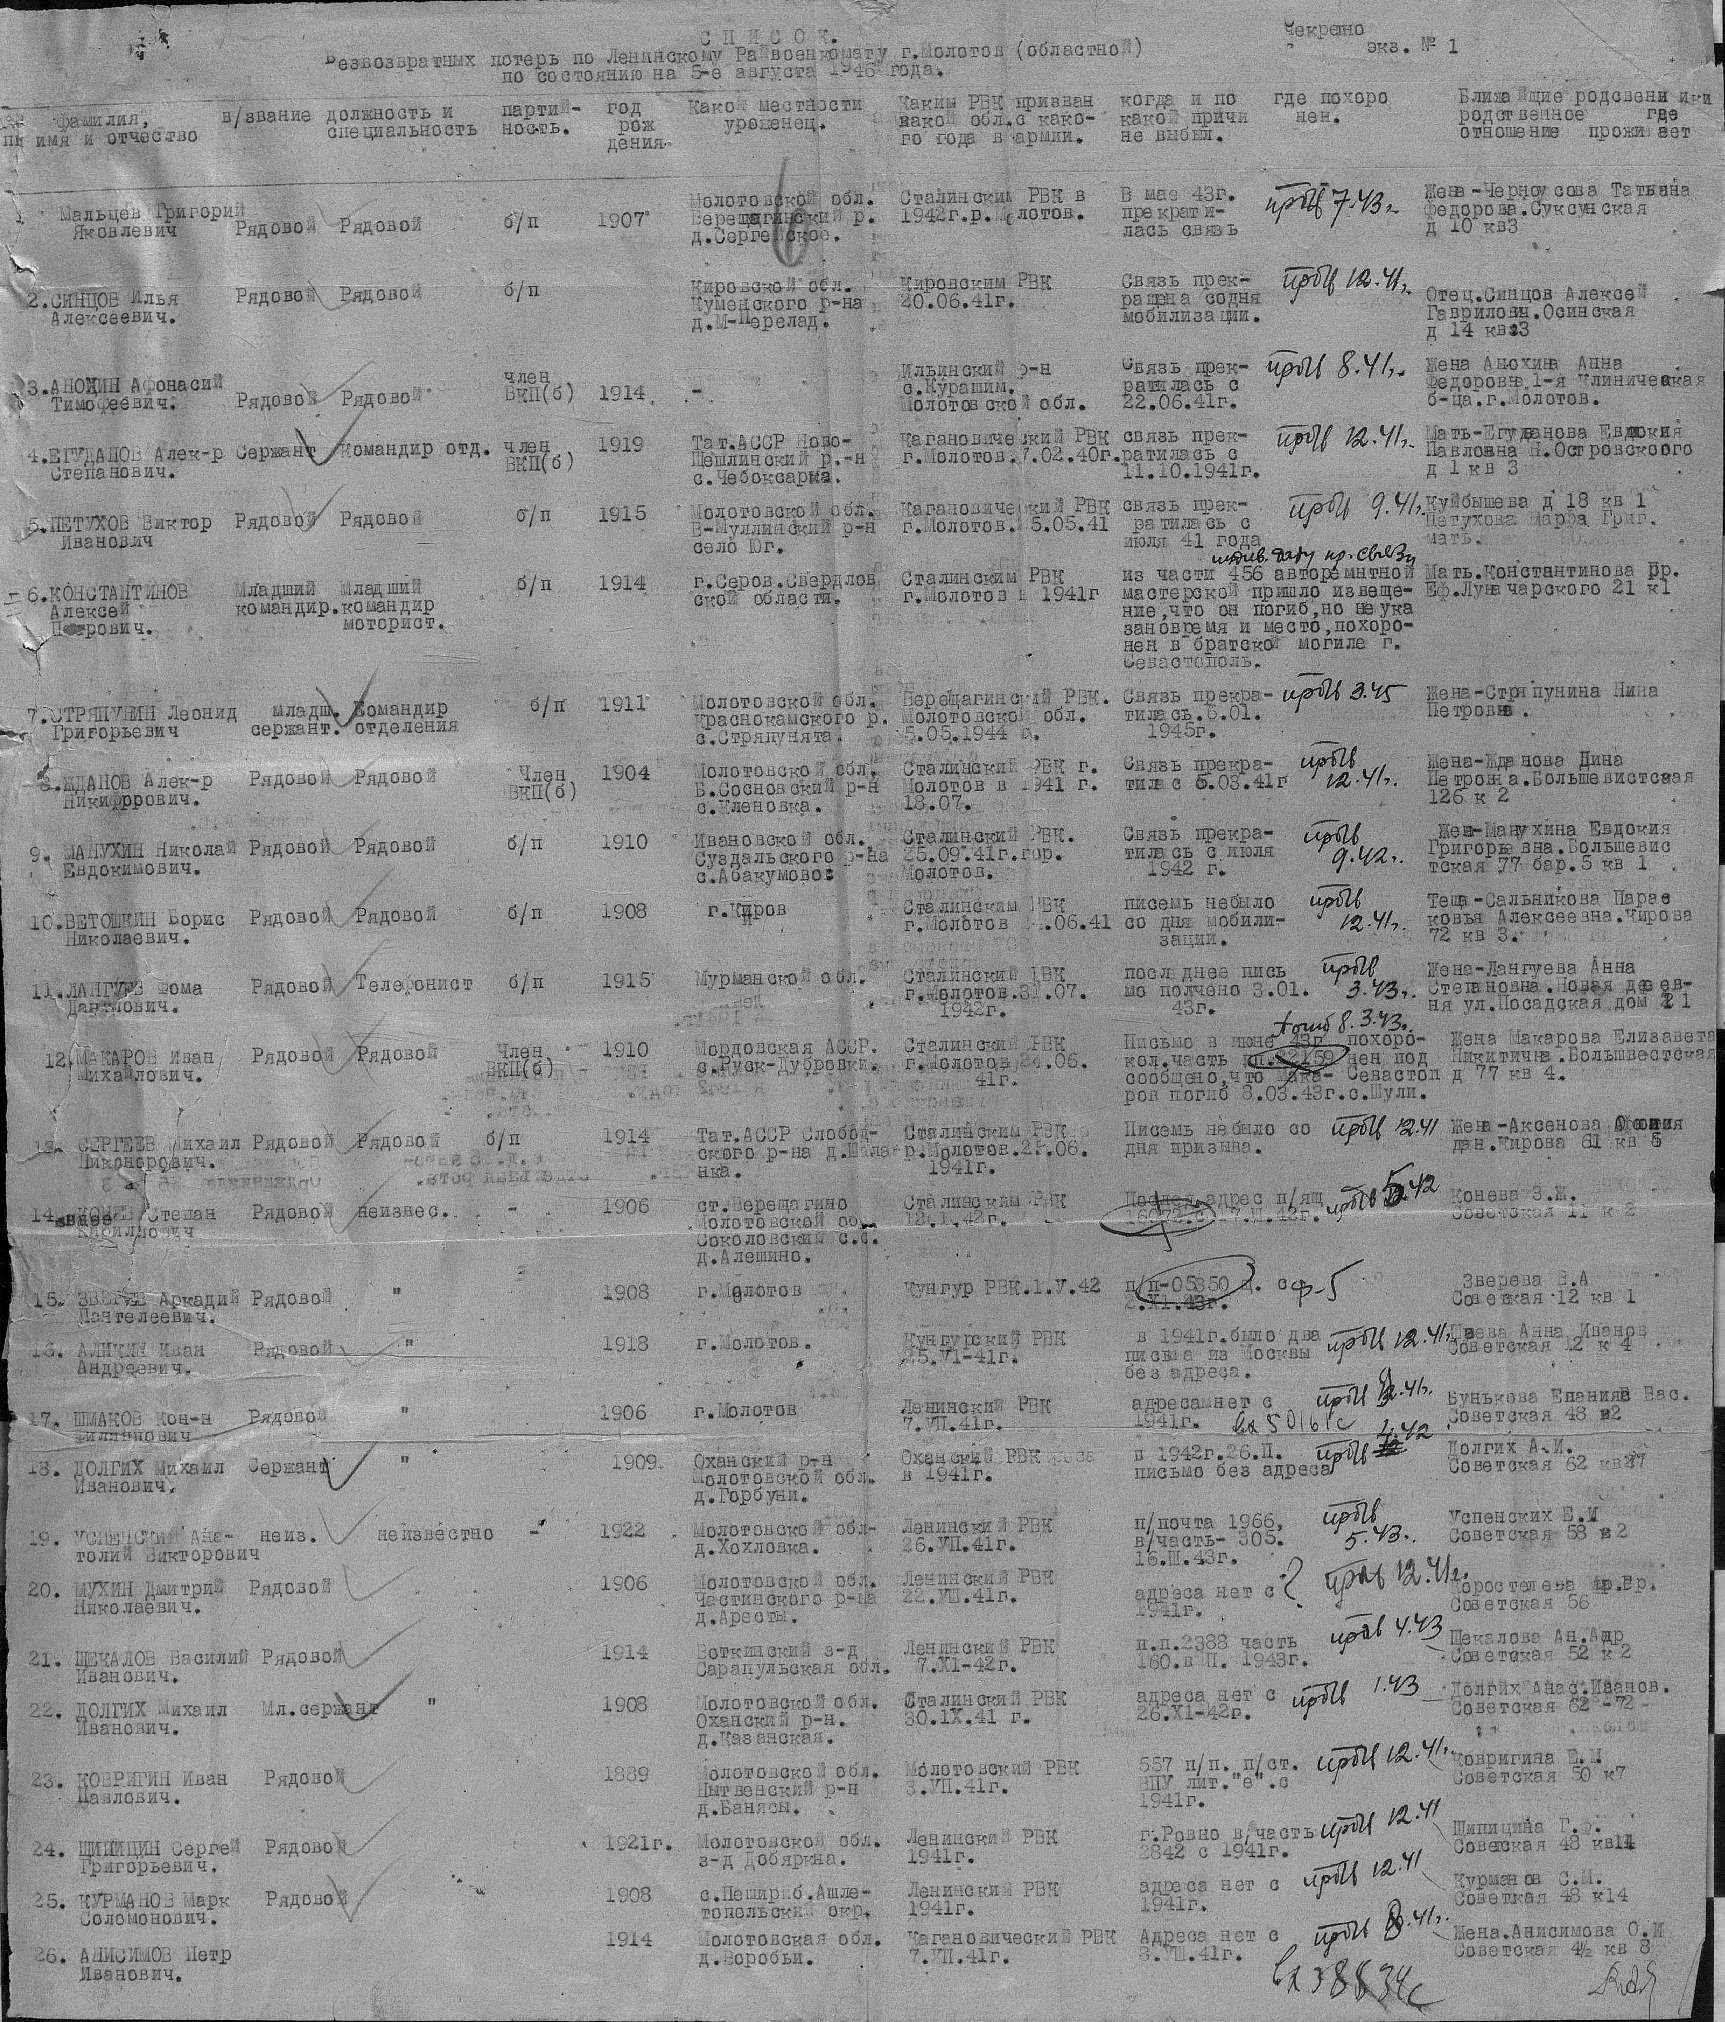 СПИСОК.
Секретно
экз. № 1
Безвозвратных потерь по Ленинскому Райвоенкомату г.Молотов (областной)
по состоянию на 5-е августа 1946 года.
фамилия, имя и отчество
в/звание
должность и специальность
партий-ность.
год рож дения.
Какой местности уроженец.
Каким РВК призван какой обл.с како-го года в армии.
когда и по какой причи не выбыл.
где похоро нен.
Ближайщие родсвенники родственное где отношение проживает
Мальцев Григорий Яковлевич
Рядовой Рядовой б/п 1907
Молотовской обл. Верещагинский р. д.Сергейское.
Сталинским РВК в 1942г.р.Молотов.
В мае 43г. прекрати-лась связь
7.43г.
Жена-Черноусова Татьяна Федорова.Суксунская д 10 кв3
2.СИНЦОВ Илья Алексеевич.
Рядовой Рядовой б/п
Кировской обл. Куменского р-на д.М-Перелад.
Кировским РВК 20.06.41г.
Связь прек-ращена содня мобилизации.
12.41г.
Отец.Синцов Алексей Гаврилович.Осинская д 14 кв 3
3.АНОХИН Афонасий Тимофеевич.
Рядовой Рядовой член ВКП(б) 1914 -
Ильинский р-н с.Курашим. Молотовской обл.
Связь прек-ратилась с 22.06.41г.
8.41г.
Жена Анохина Анна Федоровна 1-я Клиническая б-ца.г.Молотов.
4.ЕГУДАНОВ Алек-р Степанович.
Сержант командир отд. член ВКП(б) 1919
Тат.АССР Ново-Шешлинский р.-н с.Чебоксарка.
Кагановический РВК г.Молотов.7.02.40г.
связь прек-ратилась с 11.10.1941г.
12.41г.
Мать-Егуданова Евдокия Павловна Н.Островского д 1 кв 3
5.ПЕТУХОВ Виктор Иванович
Рядовой Рядовой б/п 1915
Молотовской обл. В-Муллинский р-н село Юг.
Кагановический РВК г.Молотов. 5.05.41
связь прек-ратилась с июля 41 года
9.41г.
Куйбышева д 18 кв 1 Петухова Марфа Григ. мать.
6.КОНСТАНТИНОВ Алексей Петрович.
Младший командир. Младший командир моторист. б/п 1914
г.Серов.Свердлов ской области.
Сталинским РВК г.Молотов 1941г
из части 456 авторемнтной мастерской пришло извеще-ние,что он погиб,но не ука зановремя и место,похоро-нен в братской могиле г. Севастополь.
Мать.Константинова Еф.Луначарского 21 к1
7.СТРЯПУНИН Леонид Григорьевич
младш. сержант. Командир отделения б/п 1911
Молотовской обл. Краснокамского р. с.Стряпунята.
Верещагинский РВК. Молотовской обл. 5.05.1944 г.
Связь прекра-тилась.6.01. 1945г.
3.45
Жена-Стряпунина Нина Петровна.
8.ЖДАНОВ Алек-р Никифорович.
Рядовой Рядовой Член ВКП(б) 1904
Молотовской обл. Б.Сосновский р-н с.Еленовка.
Сталинский РВК г. Молотов в 1941 г. 18.07.
Связь прекра-тилас с 5.03.41г
12.41г.
Жена-Жданова Дина Петровна.Большевистская 126 к 2
9. МАНУХИН Николай Евдокимович.
Рядовой Рядовой б/п 1910
Ивановской обл. Суздальского р-на с.Абакумово
Сталинский РВК. 25.09.41г.гор. Молотов.
Связь прекра-тилась с июля 1942 г.
9.42г.
Жена-Манухина Евдокия Григорьевна.Большевис тская 77 бар.5 кв 1
10.ВЕТОШКИН Борис Николаевич.
Рядовой Рядовой б/п 1908
г.Киров
Сталинским РВК г.Молотов .06.41
писемь небыло со дня мобили-зации.
12.41г.
Теща-Сальникова Парас ковья Алексеевна.Кирова 72 кв 3.
11.ЛАНГУЕВ Фома
Рядовой Телефонист б/п 1915
Мурманской обл.
Сталинский РВК г.Молотов.31.07. 1942г.
последнее пись мо полчено 3.01. 43г.
3.43г.
Жена-Лангуева Анна Степановна.Новая дерев-ня ул.Посадская дом 1
12.МАКАРОВ Иван Михайлович.
Рядовой Рядовой Член ВКП(б) 1910
Мордовская АССР. с.Куск-Дубровки.
Сталинский РВК г.Молотов 24.06. 41г.
8.3.43г.
Письмо в июне 43г. кол.часть сообщено,что Мака-ров погиб 8.03.43г.
похоро-нен под Севастоп с.Шули.
Жена Макарова Елизавета Никитична.Большвестская д 77 кв 4.
13. СЕРГЕЕВ Михаил Никонорович.
Рядовой Рядовой б/п 1914
Тат.АССР Слобод-ского р-на
Сталинским РВК 1941г.
Писемь небыло со дня призыва.
12.41
Жена-Аксенова Кирова 61 кв 5
14. КОНЕВ Степан Кирилович
Рядовой неизвес. - 1906
ст.Верещагино Молотовской об. Соколовский с.с. д.Алешино.
Сталинским РВК
адрес п/ящ
5.42
Конева З.И. Советская 11 к 2
15. ЗВЕРЕВ Аркадий Пантелеевич.
Рядовой " 1908
г.Молотов
Кунгур РВК.1.V.42
п/п-05350 2.XI.43г.
Зверева В.А Советская 12 кв 1
16. АЛИКИН Иван Андреевич.
Рядовой " 1918
г.Молотов.
Кунгурский РВК 25.VI-41г.
в 1941г.было два письма из Москвы без адреса.
12.41г.
Анна Иванов Советская 12 к 4
17. ШМАКОВ Кон-н Филиппович
Рядовой " 1906
г.Молотов
Ленинский РВК 7.VП.41г.
адресамнет с 1941г.
вх 5016с
Бунькова Епания Вас. Советская 48 к2
18. ДОЛГИХ Михаил Иванович.
Сержант " 1909
Оханский р-н Молотовской обл. д.Горбуни.
Оханский РВК в 1941г.
п 1942г.26.П. письмо без адреса
4.42
Долгих А.И. Советская 62
19. УСПЕНСКИЙ Ана-толий Викторович
неиз. неизвестно - 1922
Молотовской обл-д.Хохловка.
Ленинский РВК 26.VП.41г.
п/почта 1966, в/часть- 305. 16.Ш.43г.
5.43г.
Успенских Е.М Советская 53 к2
20. МУХИН Дмитрий Николаевич.
Рядовой 1906
Молотовской обл. Частинского р-на д.Аресты.
Ленинский РВК 22.VШ.41г.
адреса нет с 1941г.
12.41г.
Коростелева Советская 56
21. ЩЕКАЛОВ Василий Иванович.
Рядовой 1914
Воткинский з-д Сарапульская обл.
Ленинский РВК 7.XI-42г.
п.п.2388 часть 160.в П. 1943г.
4.43
Щекалова Ан.Андр Советская 52 к 2
22. ДОЛГИХ Михаил Иванович.
Мл.сержант " 1908
Молотовской обл. Оханский р-н. д.Казанская.
Сталинский РВК 30.IX.41 г.
адреса нет с 26.XI-42г.
1.43
Долгих Анас.Иванов. Советская 62 -72
23. КОВРИГИН Иван Павлович.
Рядовой 1889
Молотовской обл. Нытвенский р-н д.Банясы.
Молотовский РВК 3.VП.41г.
557 п/п. п/ст. ВПУ лит."е".с 1941г.
12.41г.
Ковригина Е.И Советская 50 к7
24. ШИПИЦИН Сергей Григорьевич.
Рядовой 1921г.
Молотовской обл. з-д Добярка.
Ленинский РВК 1941г.
г.Ровно в/часть 2842 с 1941г.
12.41
Шипицина Г. Советская 48 кв14
25. КУРМАНОВ Марк Соломонович.
Рядовой 1908
с.Пешириб.Ашле-топольский окр.
Ленинский РВК 1941г.
адреса нет с 1941г.
12.41
Курманов С.М. Советкая 48 к14
26. АНИСИМОВ Петр Иванович.
1914
Молотовская обл. д.Воробьи.
Кагановический РВК 7.VП.41г.
Адреса нет с 8.VШ.41г.
Жена.Анисимова О.И Советская 4½ кв 8